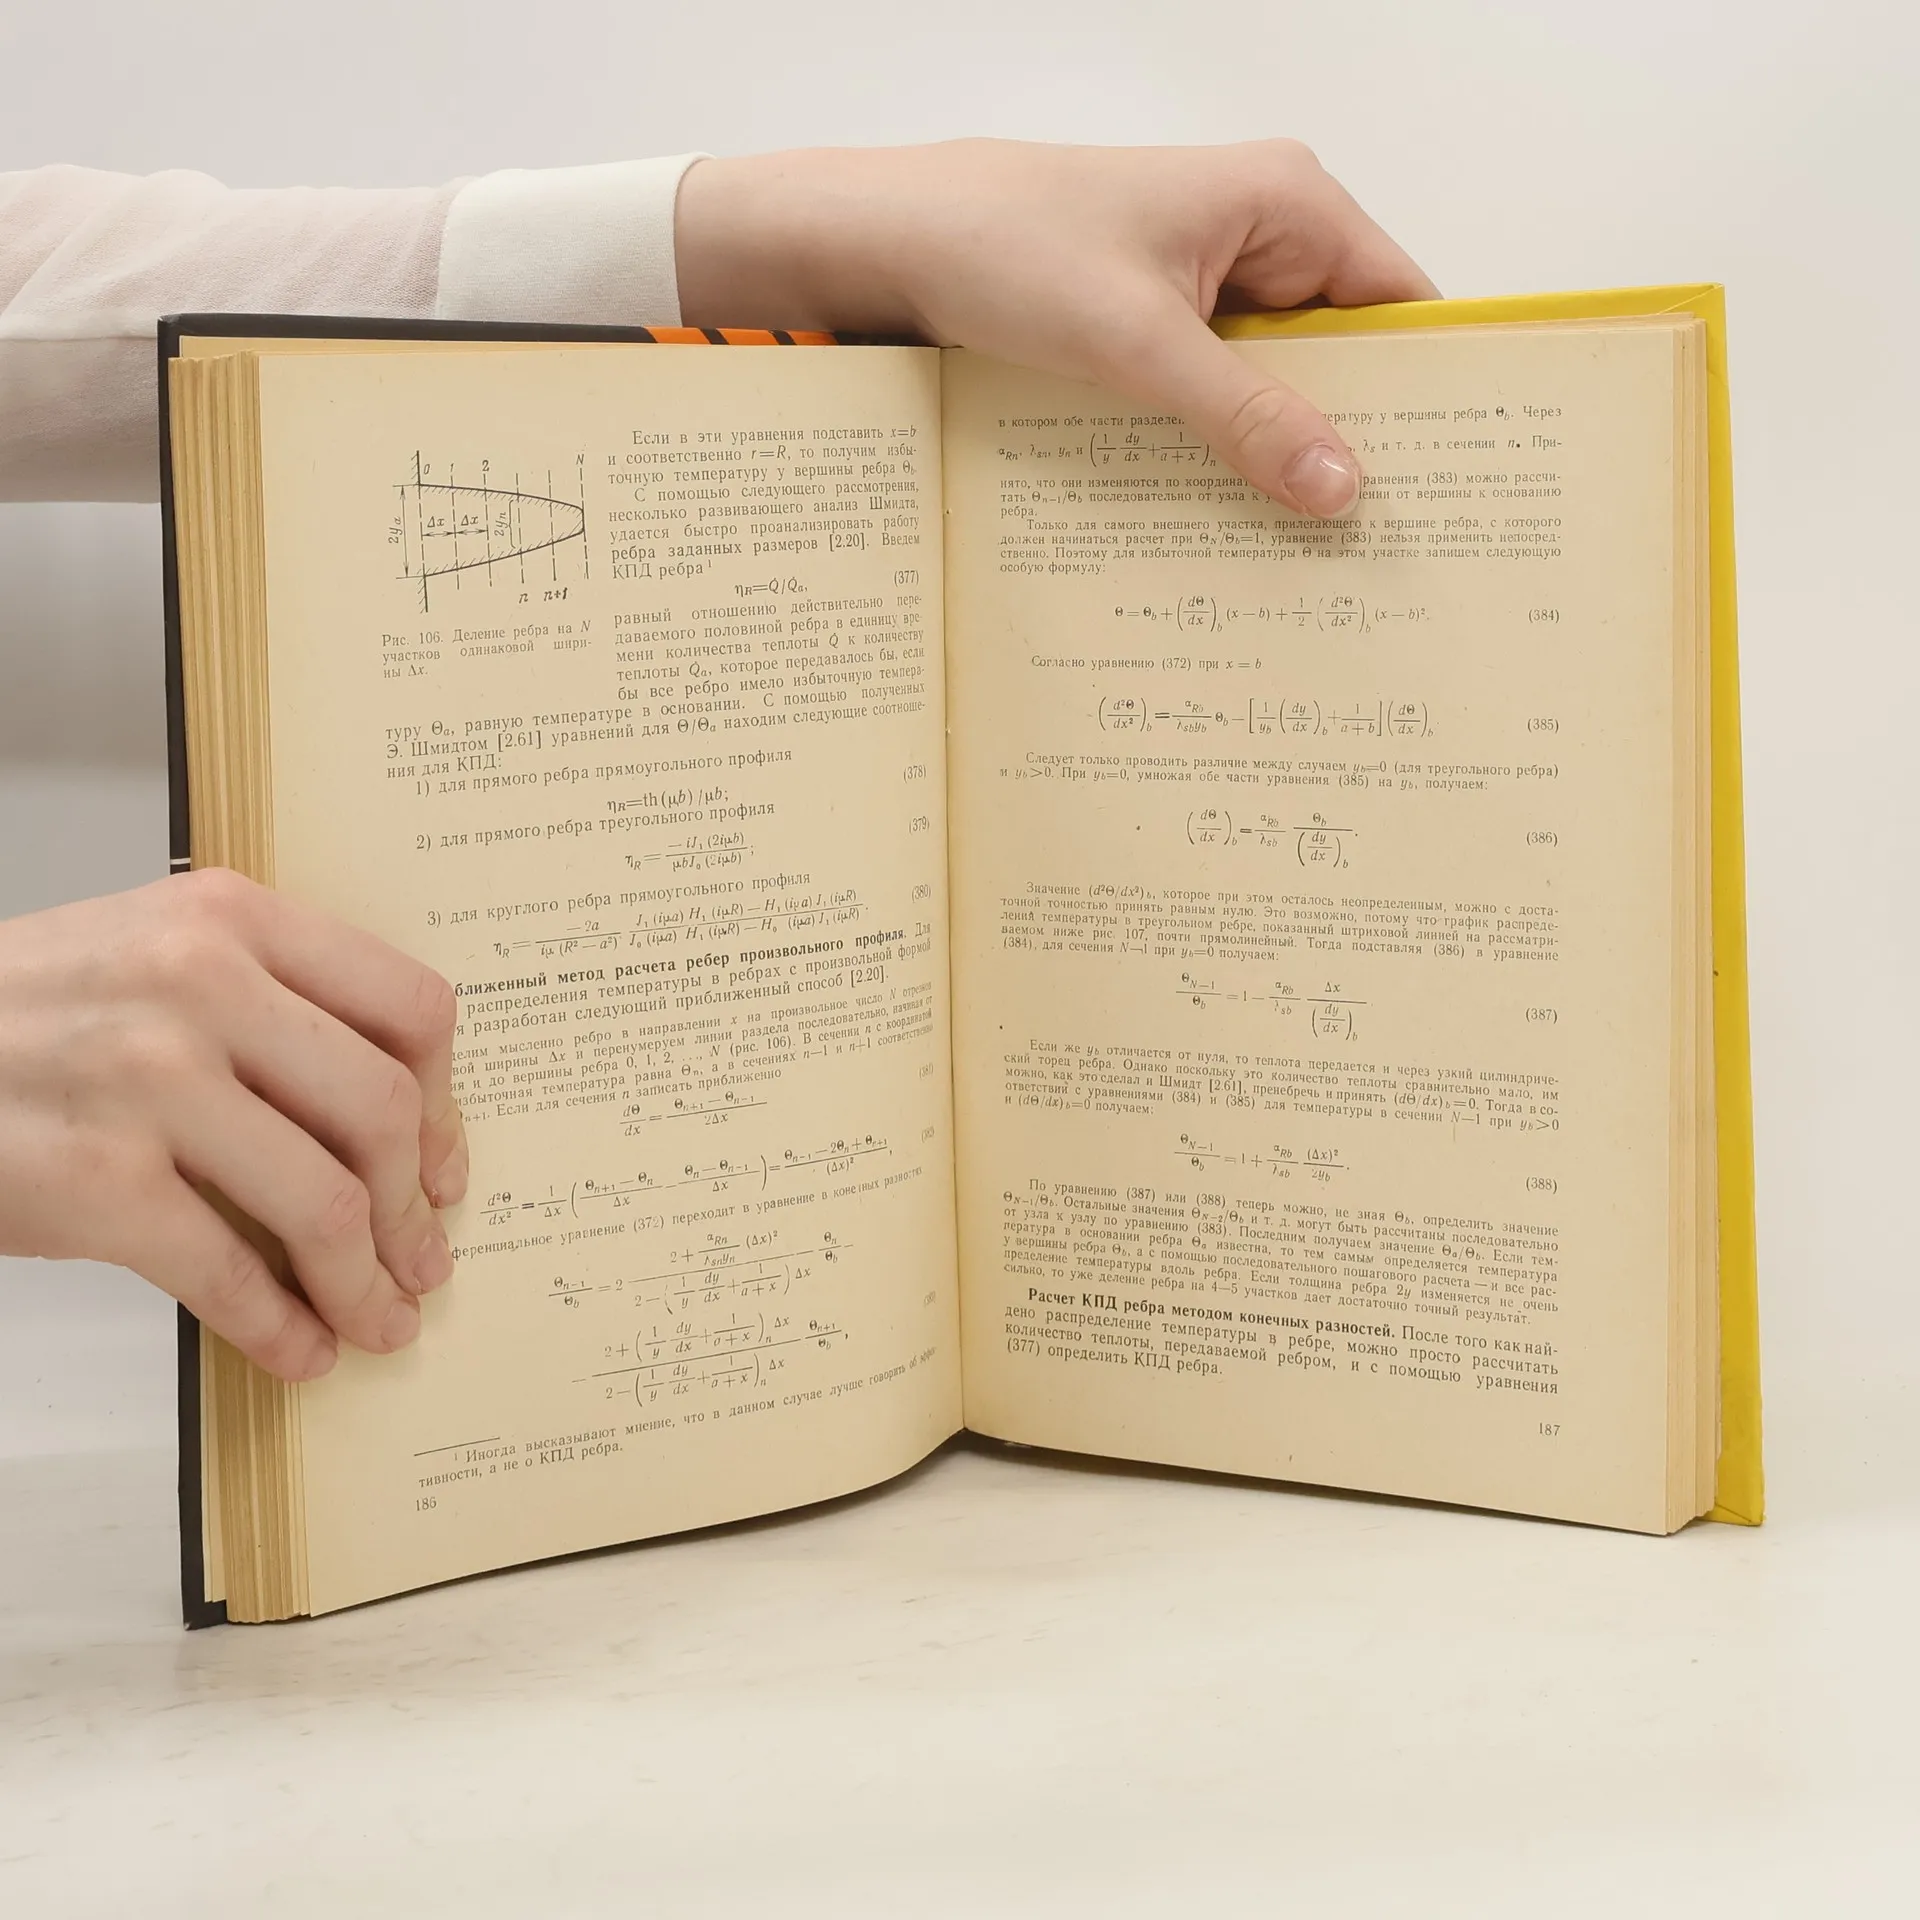 0 1 2 N
2yₐ Δx Δx 2yₙ
n n+1
Рис. 106. Деление ребра на N
участков одинаковой шири-
ны Δx.
Если в эти уравнения подставить x=b
и соответственно r=R, то получим избы-
точную температуру у вершины ребра Θb.
С помощью следующего рассмотрения,
несколько развивающего анализ Шмидта,
удается быстро проанализировать работу
ребра заданных размеров [2.20]. Введем
КПД ребра ¹
ηR=Q̇/Q̇ₐ, (377)
равный отношению действительно пере-
даваемого половиной ребра в единицу вре-
мени количества теплоты Q̇ к количеству
теплоты Q̇ₐ, которое передавалось бы, если
бы все ребро имело избыточную темпера-
туру Θₐ, равную температуре в основании. С помощью полученных
Э. Шмидтом [2.61] уравнений для Θ/Θₐ находим следующие соотноше-
ния для КПД:
1) для прямого ребра прямоугольного профиля
ηR=th(μb)/μb; (378)
2) для прямого ребра треугольного профиля
ηR = −iJ₁(2iμb) / μbJ₀(2iμb); (379)
3) для круглого ребра прямоугольного профиля
ηR = −2a / iμ(R²−a²) · J₁(iμa) H₁(iμR) − H₁(iμa) J₁(iμR) / J₀(iμa) H₁(iμR) − H₀(iμa) J₁(iμR). (380)
ближенный метод расчета ребер произвольного профиля. Для
распределения температуры в ребрах с произвольной формой
я разработан следующий приближенный способ [2.20].
делим мысленно ребро в направлении x на произвольное число N отрезков
вой ширины Δx и перенумеруем линии раздела последовательно, начиная от
ия и до вершины ребра 0, 1, 2, ..., N (рис. 106). В сечении n с координатой
избыточная температура равна Θₙ, а в сечениях n−1 и n+1 соответственно
ₙ₊₁. Если для сечения n записать приближенно
dΘ/dx = (Θₙ₊₁ − Θₙ₋₁) / 2Δx (381)
d²Θ/dx² = 1/Δx ((Θₙ₊₁ − Θₙ)/Δx − (Θₙ − Θₙ₋₁)/Δx) = (Θₙ₋₁ − 2Θₙ + Θₙ₊₁)/(Δx)², (382)
ференциальное уравнение (372) переходит в уравнение в конечных разностях
Θₙ₋₁/Θb = 2 (2 + αRn/(λsnyn) (Δx)²) / (2 − (1/y dy/dx + 1/(a+x)) Δx) Θₙ/Θb −
− (2 + (1/y dy/dx + 1/(a+x))ₙ Δx) / (2 − (1/y dy/dx + 1/(a+x))ₙ Δx) Θₙ₊₁/Θb, (383)
¹ Иногда высказывают мнение, что в данном случае лучше говорить об эффек-
тивности, а не о КПД ребра.
186
в котором обе части разделе пературу у вершины ребра Θb. Через
αRn, λsn, yₙ и (1/y dy/dx + 1/(a+x))ₙ λs и т. д. в сечении n. При-
нято, что они изменяются по координат равнения (383) можно рассчи-
тать Θₙ₋₁/Θb последовательно от узла к у ении от вершины к основанию
ребра.
Только для самого внешнего участка, прилегающего к вершине ребра, с которого
должен начинаться расчет при ΘN/Θb=1, уравнение (383) нельзя применить непосред-
ственно. Поэтому для избыточной температуры Θ на этом участке запишем следующую
особую формулу:
Θ = Θb + (dΘ/dx)b (x − b) + 1/2 (d²Θ/dx²)b (x − b)². (384)
Согласно уравнению (372) при x = b
(d²Θ/dx²)b = αRb/(λsbyb) Θb − [1/yb (dy/dx)b + 1/(a+b)] (dΘ/dx)b. (385)
Следует только проводить различие между случаем yb=0 (для треугольного ребра)
и yb>0. При yb=0, умножая обе части уравнения (385) на yb, получаем:
(dΘ/dx)b = αRb/λsb Θb/(dy/dx)b. (386)
Значение (d²Θ/dx²)b, которое при этом осталось неопределенным, можно с доста-
точной точностью принять равным нулю. Это возможно, потому что график распреде-
лений температуры в треугольном ребре, показанный штриховой линией на рассматри-
ваемом ниже рис. 107, почти прямолинейный. Тогда подставляя (386) в уравнение
(384), для сечения N−1 при yb=0 получаем:
ΘN−1/Θb = 1 − αRb/λsb Δx/(dy/dx)b. (387)
Если же yb отличается от нуля, то теплота передается и через узкий цилиндриче-
ский торец ребра. Однако поскольку это количество теплоты сравнительно мало, им
можно, как это сделал и Шмидт [2.61], пренебречь и принять (dΘ/dx)b=0. Тогда в со-
ответствий с уравнениями (384) и (385) для температуры в сечении N−1 при yb>0
и (dΘ/dx)b=0 получаем:
ΘN−1/Θb = 1 + αRb/λsb (Δx)²/2yb. (388)
По уравнению (387) или (388) теперь можно, не зная Θb, определить значение
ΘN−1/Θb. Остальные значения ΘN−2/Θb и т. д. могут быть рассчитаны последовательно
от узла к узлу по уравнению (383). Последним получаем значение Θₐ/Θb. Если тем-
пература в основании ребра Θₐ известна, то тем самым определяется температура
у вершины ребра Θb, а с помощью последовательного пошагового расчета — и все рас-
пределение температуры вдоль ребра. Если толщина ребра 2y изменяется не очень
сильно, то уже деление ребра на 4—5 участков дает достаточно точный результат.
Расчет КПД ребра методом конечных разностей. После того как най-
дено распределение температуры в ребре, можно просто рассчитать
количество теплоты, передаваемой ребром, и с помощью уравнения
(377) определить КПД ребра.
187